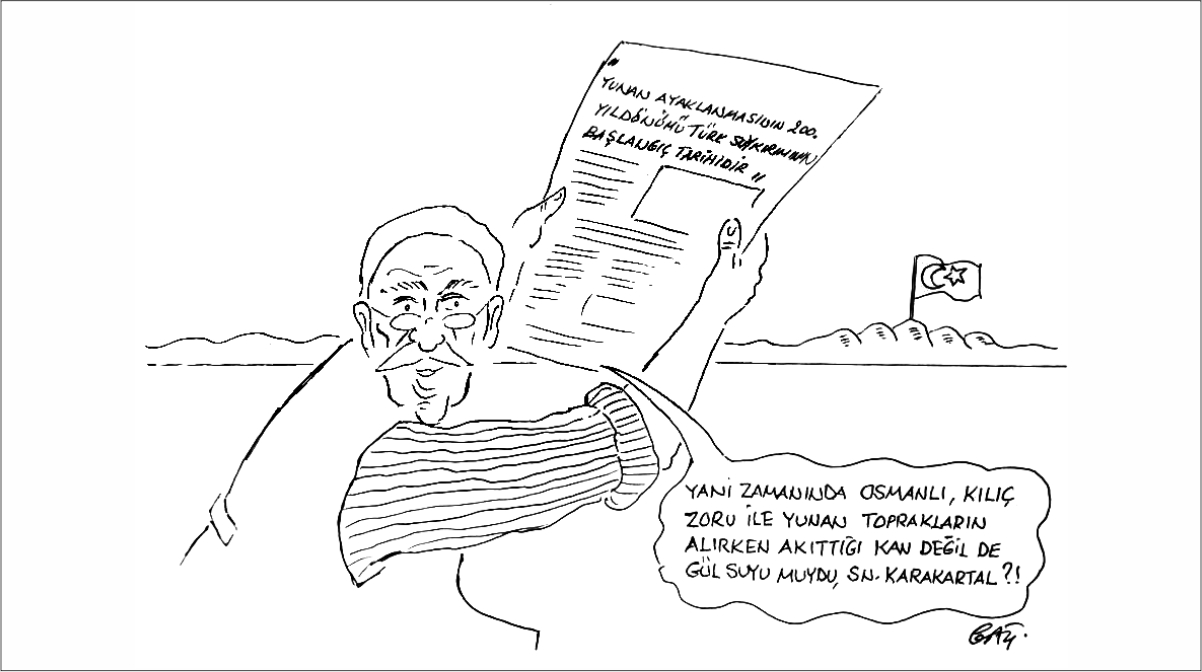 "
YUNAN AYAKLANMASININ 200.
YILDÖNÜMÜ TÜRK SOYKIRIMININ
BAŞLANGIÇ TARİHİDİR "
YANİ ZAMANINDA OSMANLI, KILIÇ
ZORU İLE YUNAN TOPRAKLARIN
ALIRKEN AKITTIĞI KAN DEĞİL DE
GÜL SUYU MUYDU, SN. KARAKARTAL?!